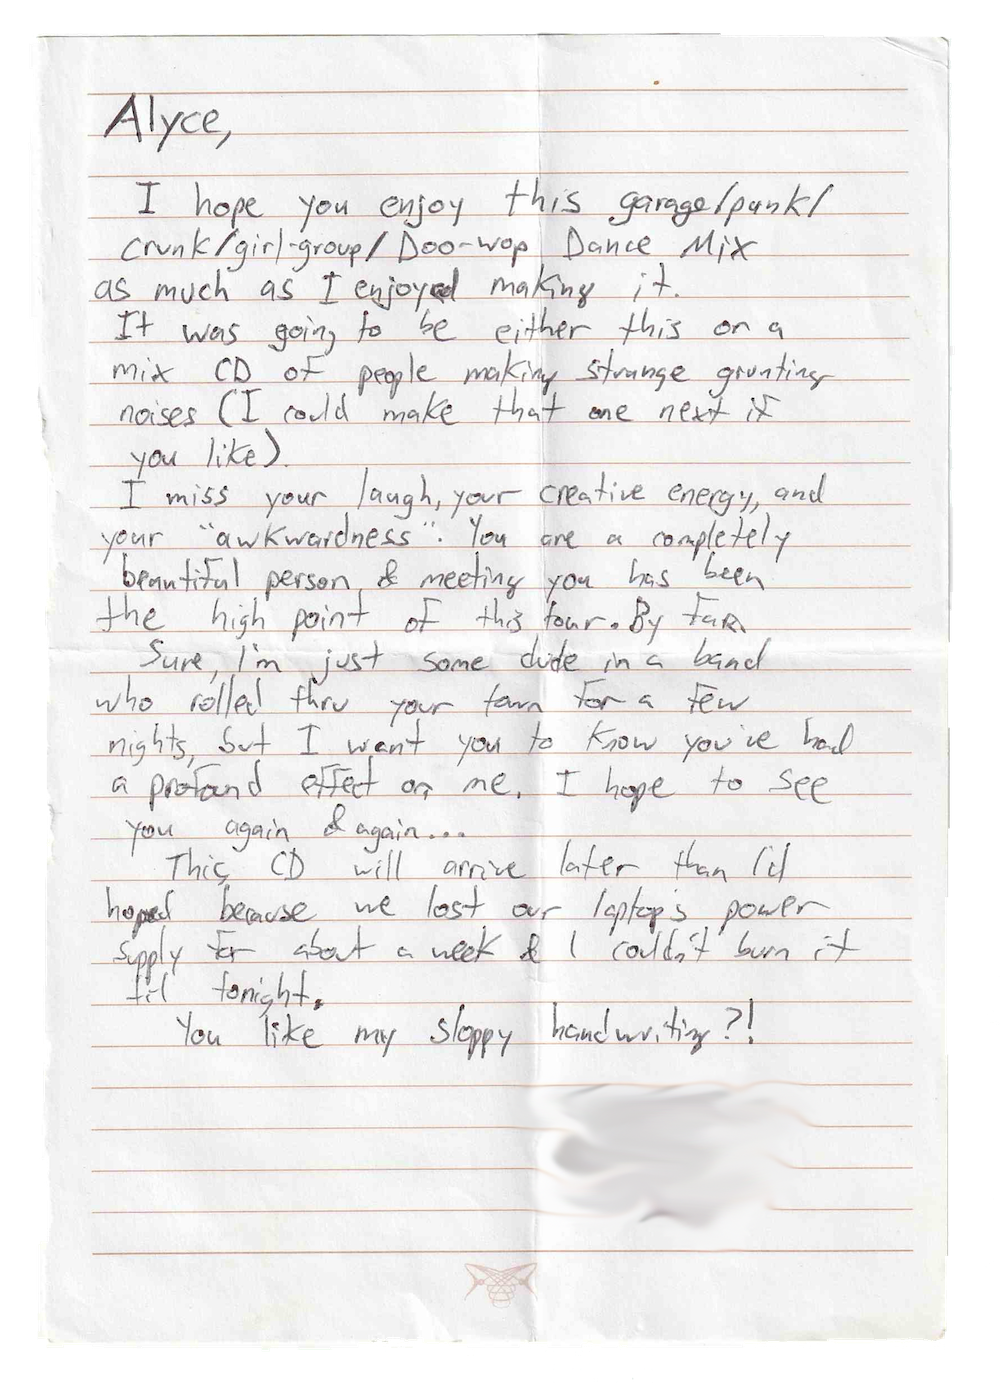 Alyce,
I hope you enjoy this garage/punk/
crunk/girl-group/Doo-wop Dance Mix
as much as I enjoyed making it.
It was going to be either this or a
mix CD of people making strange grunting
noises (I could make that one next if
you like).
I miss your laugh, your creative energy, and
your "awkwardness". You are a completely
beautiful person & meeting you has been
the high point of this tour. By far.
Sure, I'm just some dude in a band
who rolled thru your town for a few
nights, but I want you to know you've had
a profound effect on me. I hope to see
you again & again...
This CD will arrive later than I'd
hoped because we lost our laptop's power
supply for about a week & I couldn't burn it
til tonight.
You like my sloppy handwriting?!